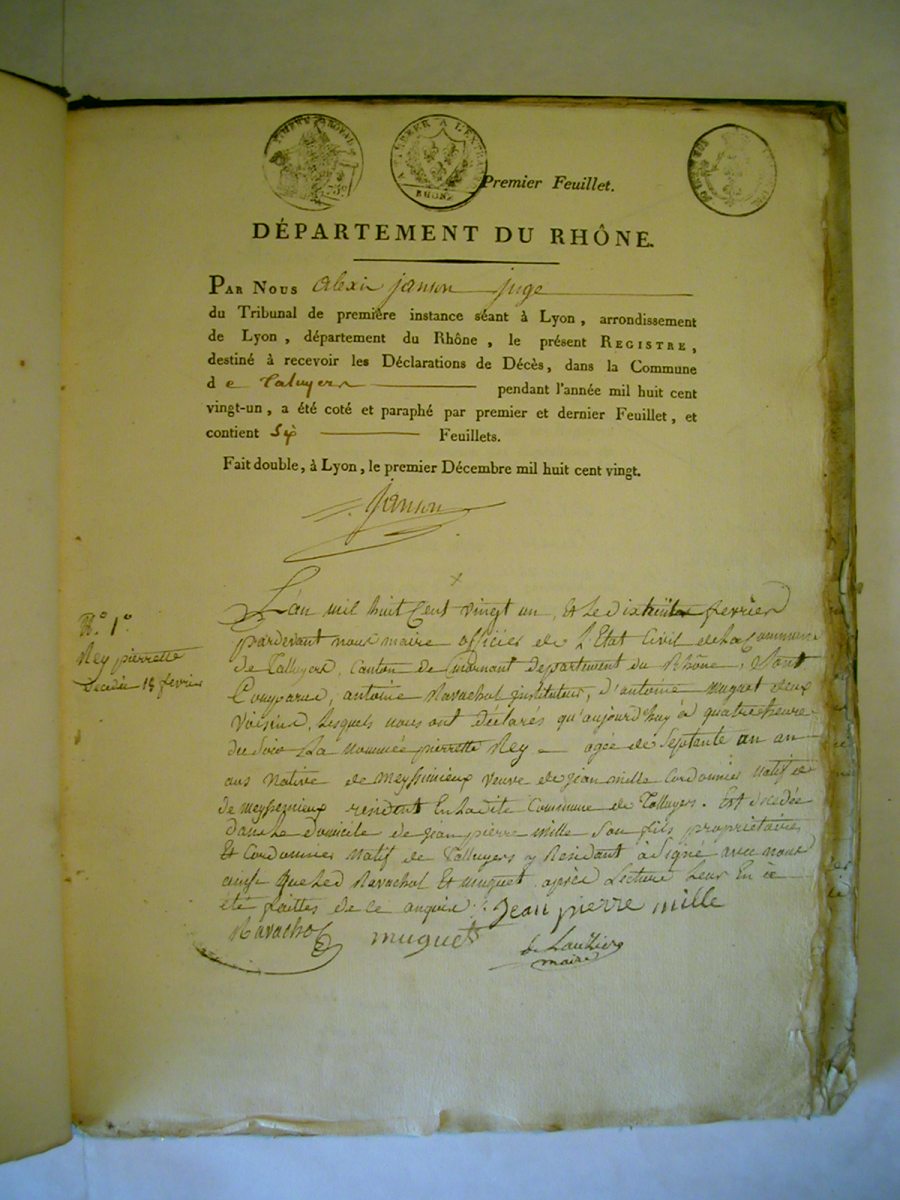 TIMBRE ROYAL
75c
A TIMBRER A L'EXTRA
RHONE
Premier Feuillet.
DÉPARTEMENT DU RHÔNE.
PAR NOUS alexis janson juge
du Tribunal de première instance séant à Lyon, arrondissement
de Lyon, département du Rhône, le présent REGISTRE,
destiné à recevoir les Déclarations de Décès, dans la Commune
de Taluyers pendant l'année mil huit cent
vingt-un, a été coté et paraphé par premier et dernier Feuillet, et
contient Six Feuillets.
Fait double, à Lyon, le premier Décembre mil huit cent vingt.
Janson
N.° 1.°
Rey pierrette
Decedée 18 fevrier
L'an mil huit Cent vingt un, Et Le dixhuit fevrier
pardevant nous maire officier de L'Etat Civil de La Commune
de Talluyers, Canton de département du Rhône, Sont
Comparus, antoine Ravachol instituteur, d'antoine muguet deux
voisins, Lesquels nous ont déclarés qu'aujourd'huy à quatre heure
du Soir La nommée pierrette Rey agée de Septante un an
ans Native de Meyssimieux veuve de jean mille Cordonnier Natif de
de meyssemieux resident En Ladite Commune de Talluyers. Est décedée
dans Le domicile de jean pierre mille Son fils propriétaire
Et Cordonnier Natif de Talluyers y Residant à Signé avec nous
ainsi que Led Ravachol Et muguet après Lecture Leur En a
été faittes de ce enquis Jean pierre mille
Ravachol muguet de Lauzière
maire